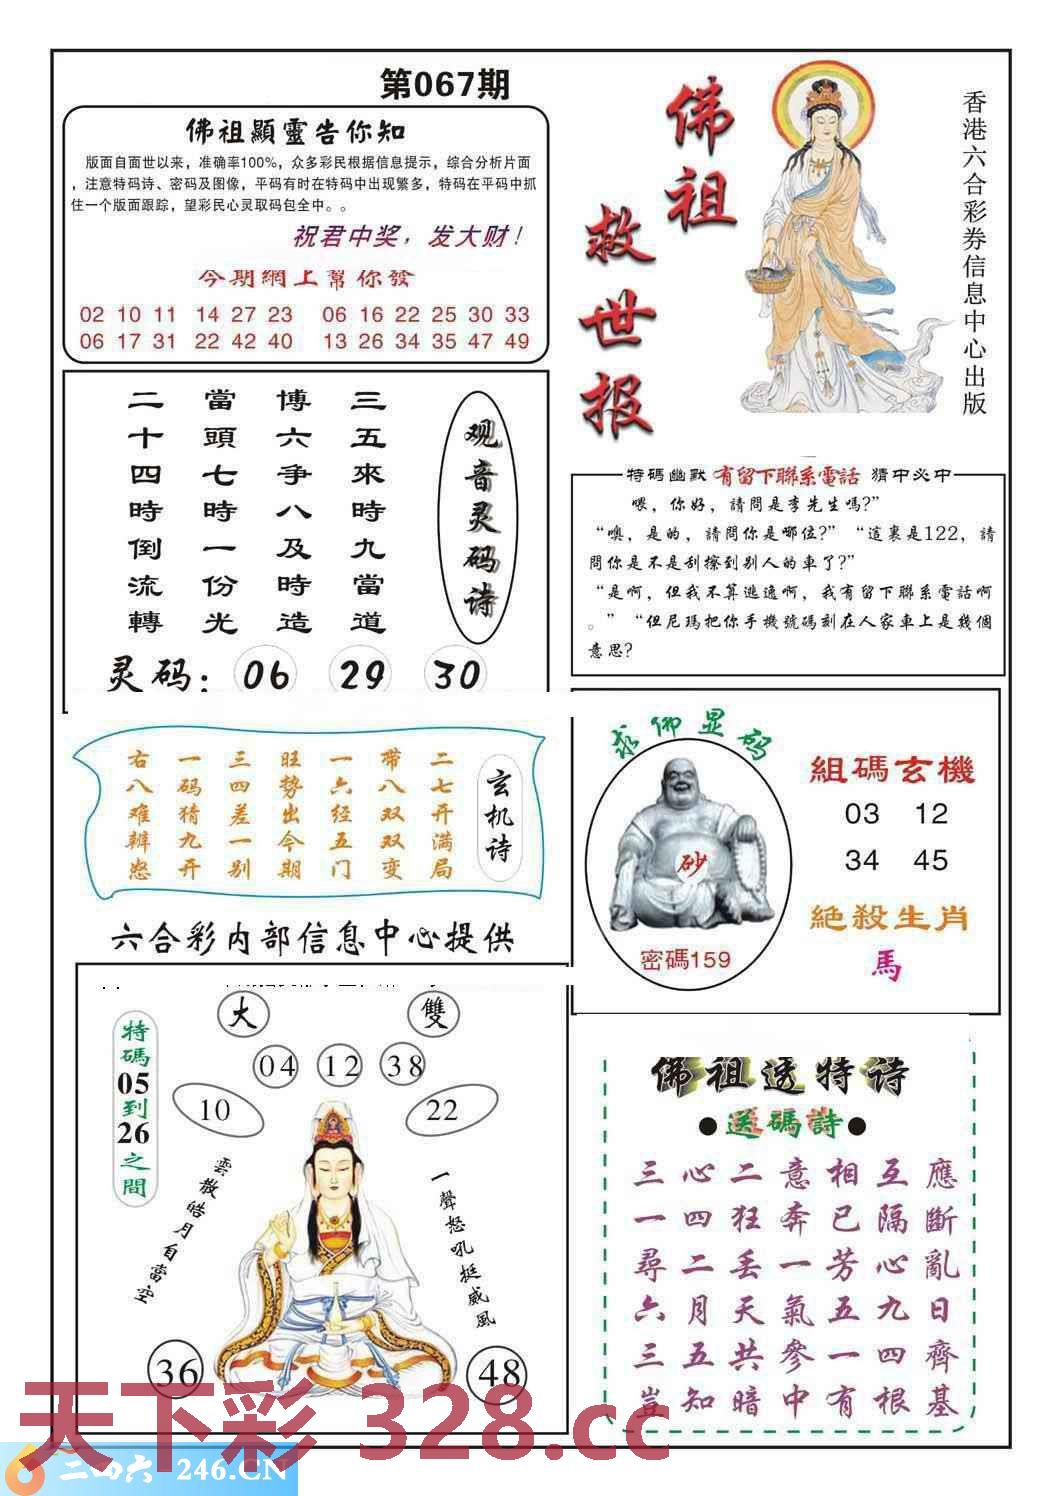 第067期
佛祖顯靈告你知
版面自面世以来，准确率100%，众多彩民根据信息提示，综合分析片面
，注意特码诗、密码及图像，平码有时在特码中出现繁多，特码在平码中抓
住一个版面跟踪，望彩民心灵取码包全中。。
祝君中奖，发大财！
今期網上幫你發
02 10 11 14 27 23 06 16 22 25 30 33
06 17 31 22 42 40 13 26 34 35 47 49
佛祖
救世报
香港六合彩券信息中心出版
观音灵码诗
三五來時九當道
博六爭八及時造
當頭七時一份光
二十四時倒流轉
灵码：06 29 30
特碼幽默 有留下聯系電話 猜中必中
喂，你好，請問是李先生嗎?”
“噢，是的，請問你是哪位?” “這裏是122，請
問你是不是刮擦到别人的車了?”
“是啊，但我不算逃逸啊，我有留下聯系電話啊
。” “但尼瑪把你手機號碼刻在人家車上是幾個
意思?
玄机诗
二七开满局
带八双双变
一六经五门
旺势出今期
三四差一别
一码猜九开
右八难辨愁
六合彩内部信息中心提供
求佛显码
砂
密碼159
組碼玄機
03 12
34 45
絶殺生肖
馬
大 雙
04 12 38
10 22
特碼05到26之間
雲散皓月自當空
一聲怒吼挺威風
36 48
佛祖透特诗
●送碼詩●
三心二意相互應
一四狂奔已隔斷
尋二丢一芳心亂
六月天氣五九日
三五共參一四齊
豈知暗中有根基
天下彩 328.cc
二四六 246.CN